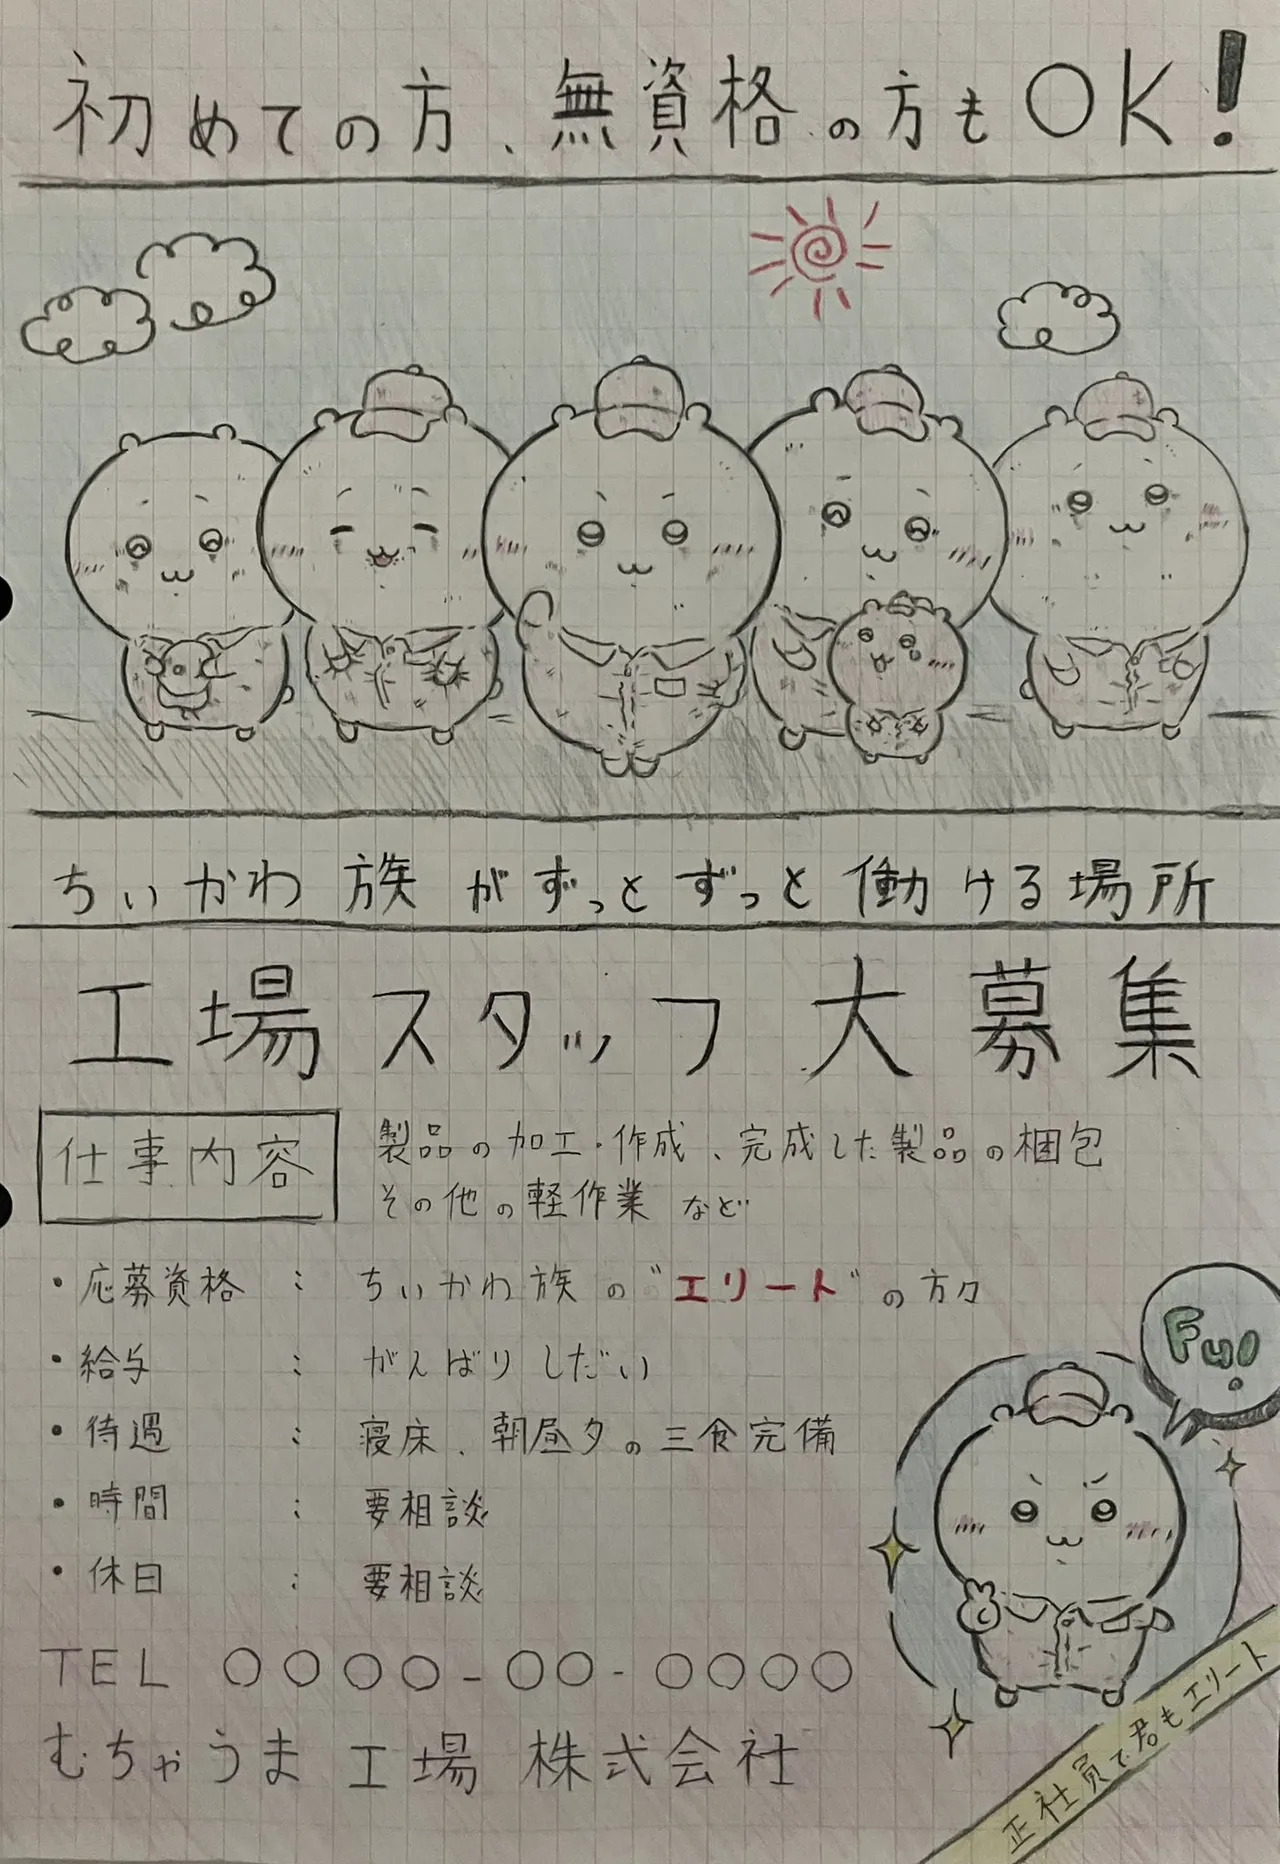 初めての方、無資格の方もOK!
ちいかわ族がずっとずっと働ける場所
工場スタッフ大募集
仕事内容
製品の加工・作成、完成した製品の梱包
その他の軽作業など
・応募資格：ちいかわ族の"エリート"の方々
・給与：がんばりしだい
・待遇：寝床、朝昼夕の三食完備
・時間：要相談
・休日：要相談
Fu!
TEL 〇〇〇〇-〇〇-〇〇〇〇
むちゃうま工場株式会社
正社員で君もエリート